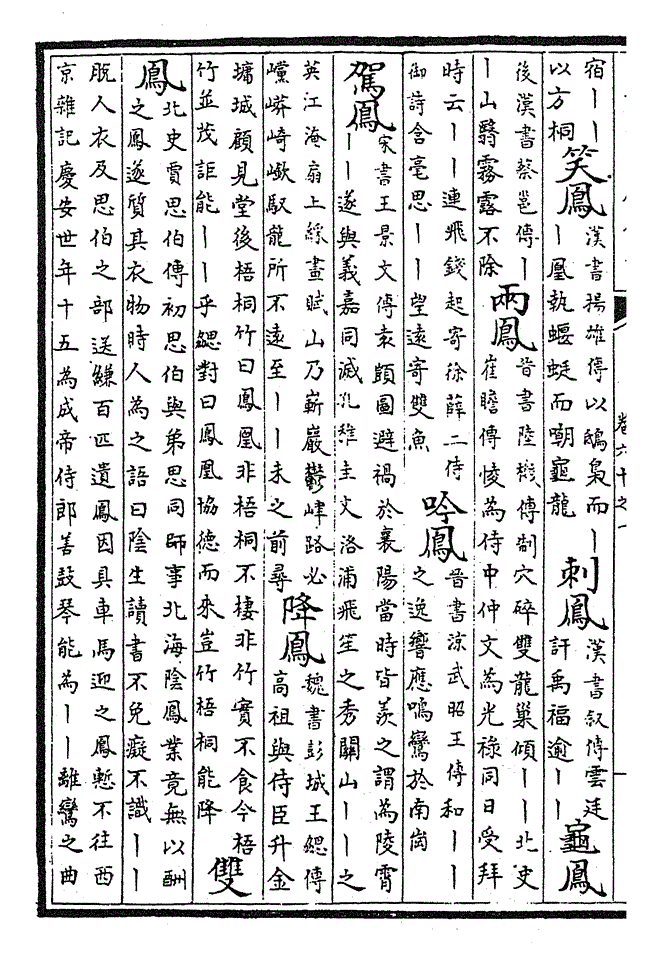 宿丨丨笑鳳漢書揚雄傳以鴟梟而丨刺鳳漢書叙傳雲廷
以方桐丨凰執蝘蜓而嘲龜龍訐禹福逾丨丨龜鳳
後漢書蔡邕傳丨兩鳳晉書陸機傳制穴碎雙龍巢傾丨丨北史
丨山翳霧露不除崔瞻傳㥄為侍中仲文為光禄同日受拜
時云丨丨連飛錢起寄徐薛二侍吟鳳晉書涼武昭王傳和丨丨
御詩含毫思丨丨望遠寄雙魚之逸響應鳴鸞於南崗
駕鳳宋書王景文傳袁顗圖避禍於襄陽當時皆羨之謂為陵霄
丨丨遂與義嘉同滅孔稚圭文洛浦飛笙之秀關山丨丨之
英江淹扇上綵畫賦山乃嶄巖鬱崒路必降鳳魏書彭城王勰傳
㠓嵣崎嶔馭龍所不遠至丨丨未之前尋高祖與侍臣升金
墉城顧見堂後梧桐竹曰鳳凰非梧桐不棲非竹實不食今梧
竹並茂詎能丨丨乎勰對曰鳳凰協德而來豈竹梧桐能降雙
鳳北史賈思伯傳初思伯與弟思同師事北海陰鳳業竟無以酬
之鳳遂質其衣物時人為之語曰陰生讀書不免癡不識丨丨
脫人衣及思伯之部送縑百匹遺鳳因具車馬迎之鳳慙不往西
京雜記慶安世年十五為成帝侍郎善鼓琴能為丨丨離鸞之曲
卷六十之一